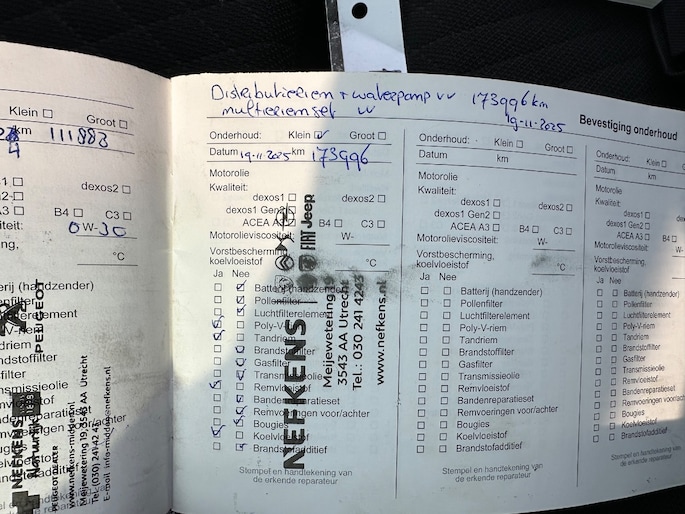 Distributieriem + waterpomp vv 173996 km
multiriemset vv 19-11-2025
Bevestiging onderhoud
Klein ☐ Groot ☐
km 111883
dexos2 ☐
B4 ☐ C3 ☐
0W-30
°C
PEUGEOT
NEFKENS
www.nefkens-midden.nl
Meijewetering 19, 3543 AA Utrecht
Tel. (030) 241 42 4
Onderhoud: Klein ☑ Groot ☐
Datum 19-11-2025 km 173996
Motorolie
Kwaliteit:
dexos1 ☐ dexos2 ☐
dexos1 Gen2 ☐
ACEA A3 ☐ B4 ☐ C3 ☐
Motorolieviscositeit: W-
Vorstbescherming,
koelvloeistof °C
Ja Nee
Batterij (handzender)
Pollenfilter
Luchtfilterelement
Poly-V-riem
Tandriem
Brandstoffilter
Gasfilter
Transmissieolie
Remvloeistof
Bandenreparatieset
Remvoeringen voor/achter
Bougies
Koelvloeistof
Brandstofadditief
Stempel en handtekening van
de erkende reparateur
NEFKENS
FIAT Jeep
Meijewetering
3543 AA Utrecht
Tel.: 030 241 4243
www.nefkens.nl
Onderhoud: Klein ☐ Groot ☐
Datum km
Motorolie
Kwaliteit:
dexos1 ☐ dexos2 ☐
dexos1 Gen2 ☐
ACEA A3 ☐ B4 ☐ C3 ☐
Motorolieviscositeit: W-
Vorstbescherming,
koelvloeistof °C
Ja Nee
☐ ☐ Batterij (handzender)
☐ ☐ Pollenfilter
☐ ☐ Luchtfilterelement
☐ ☐ Poly-V-riem
☐ ☐ Tandriem
☐ ☐ Brandstoffilter
☐ ☐ Gasfilter
☐ ☐ Transmissieolie
☐ ☐ Remvloeistof
☐ ☐ Bandenreparatieset
☐ ☐ Remvoeringen voor/achter
☐ ☐ Bougies
☐ ☐ Koelvloeistof
☐ ☐ Brandstofadditief
Stempel en handtekening van
de erkende reparateur
Onderhoud: Klein ☐
Datum km
Motorolie
Kwaliteit:
dexos1 ☐
dexos1 Gen2 ☐
ACEA A3 ☐
Motorolieviscositeit:
Vorstbescherming,
koelvloeistof
Ja Nee
☐ ☐ Batterij (handzender)
☐ ☐ Pollenfilter
☐ ☐ Luchtfilterelement
☐ ☐ Poly-V-riem
☐ ☐ Tandriem
☐ ☐ Brandstoffilter
☐ ☐ Gasfilter
☐ ☐ Transmissieolie
☐ ☐ Remvloeistof
☐ ☐ Bandenreparatieset
☐ ☐ Remvoeringen voor/achter
☐ ☐ Bougies
☐ ☐ Koelvloeistof
☐ ☐ Brandstofadditief
Stempel en handtekening van
de erkende reparateur